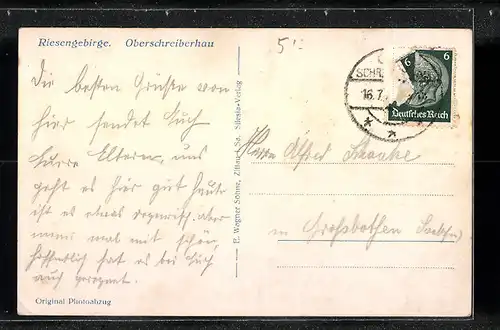 Riesengebirge. Oberschreiberhau
5.-
Die besten Grüße von
hier sendet Euch
Eure Eltern, uns
geht es hier gut heute
ist es etwas regnerisch aber
mal mit schön,
hoffentlich hat es bei Euch
auch geregnet.
Original Photoabzug
E. Wagner Söhne, Zittau i. Sa. Silesia-Verlag
SCHR
16.7.
6 6
Deutsches Reich
Herrn Alfred
in Großbothen